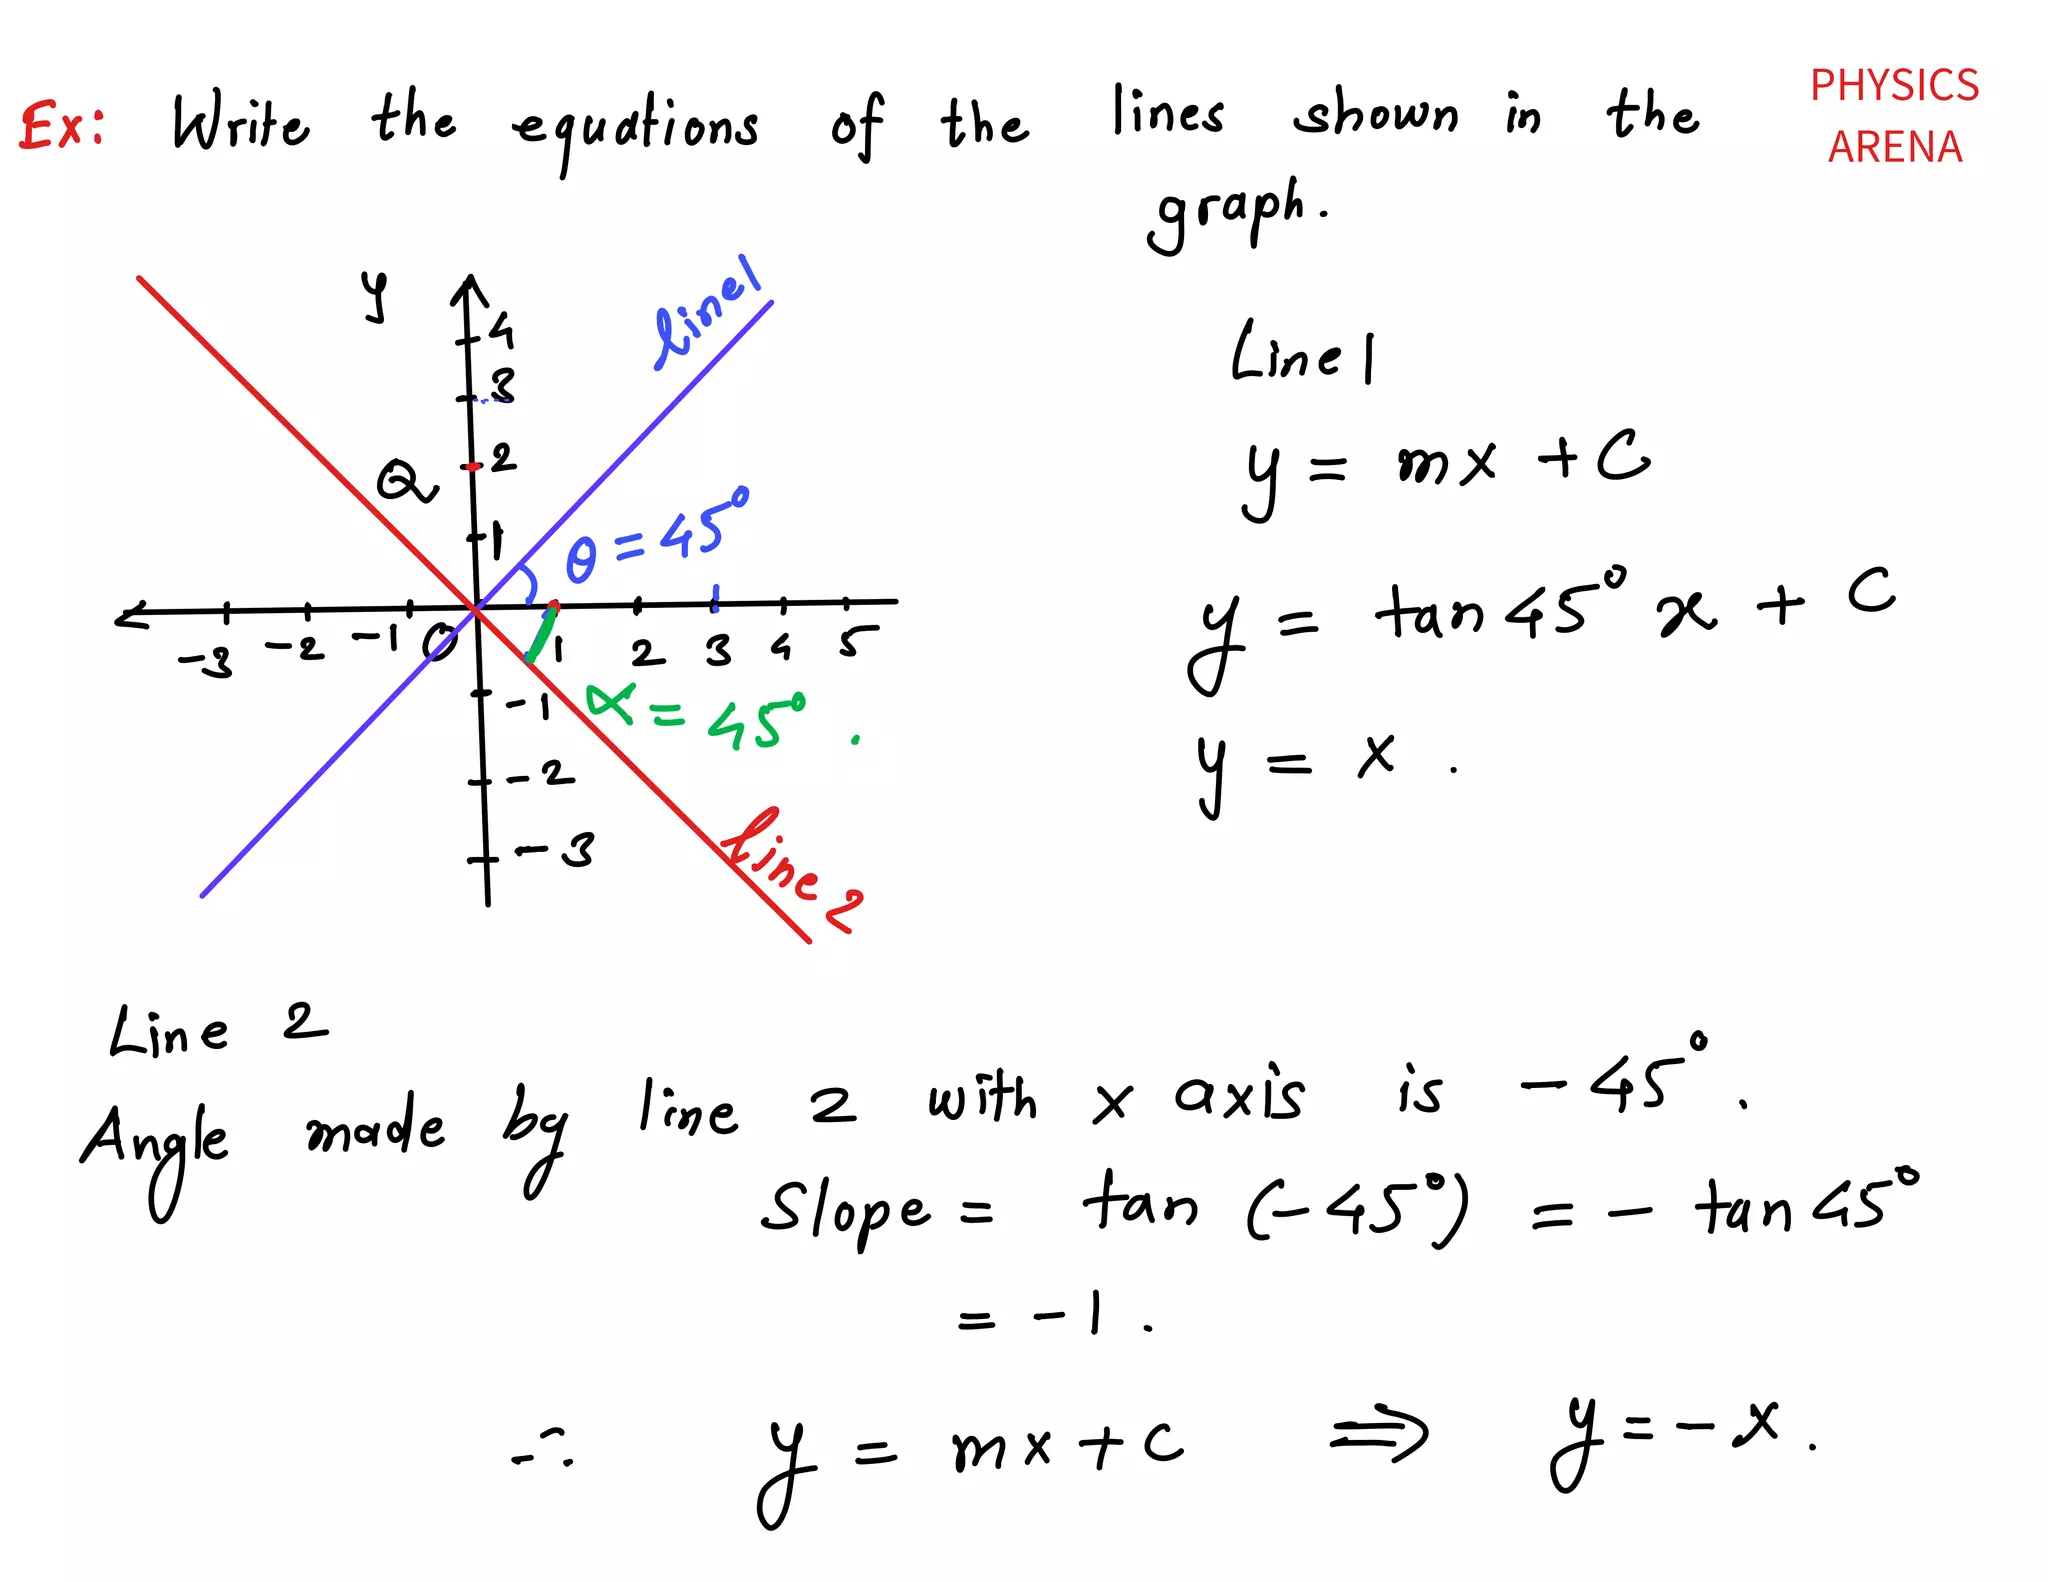 Ex: Write the equations of the lines shown in the
graph.
PHYSICS
ARENA
y
4
3
2
1
Q
line1
θ = 45°
-3 -2 -1 O 1 2 3 4 5
-1
-2
-3
α = 45°.
line 2
Line 1
y = mx + C
y = tan 45° x + C
y = x .
Line 2
Angle made by line 2 with x axis is -45°.
Slope = tan (-45°) = - tan 45°
= -1 .
∴ y = mx + c ⇒ y = -x .